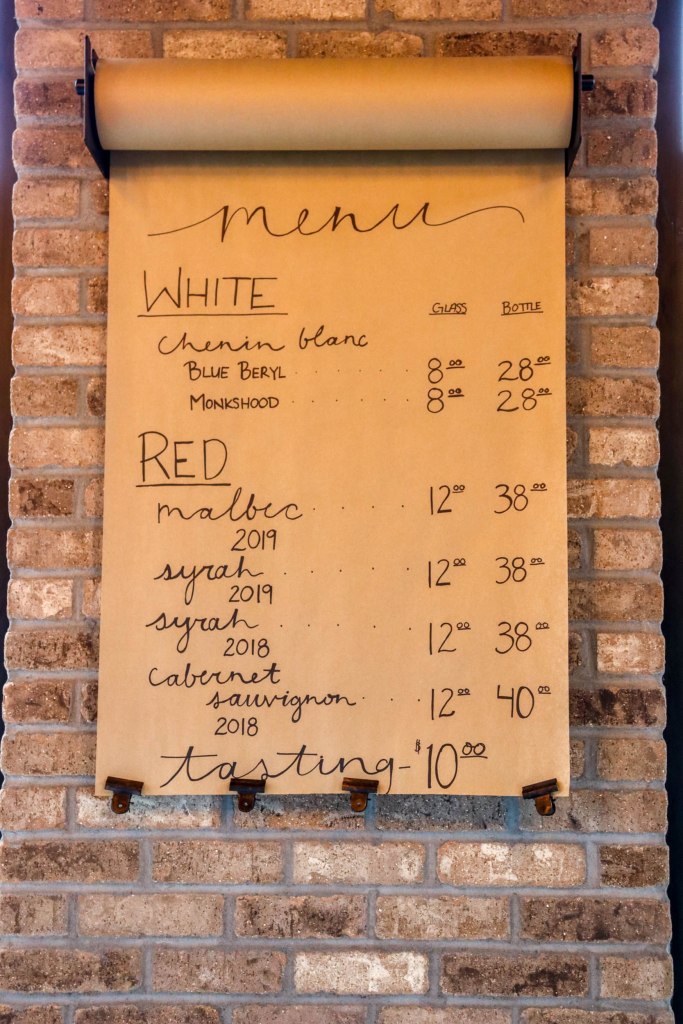 menu
WHITE GLASS BOTTLE
chenin blanc
BLUE BERYL . . . . . . 8.00 28.00
MONKSHOOD . . . . . . 8.00 28.00
RED
malbec . . . . 12.00 38.00
2019
syrah . . . . . 12.00 38.00
2019
syrah . . . . . 12.00 38.00
2018
cabernet
sauvignon . . . 12.00 40.00
2018
tasting - $10.00